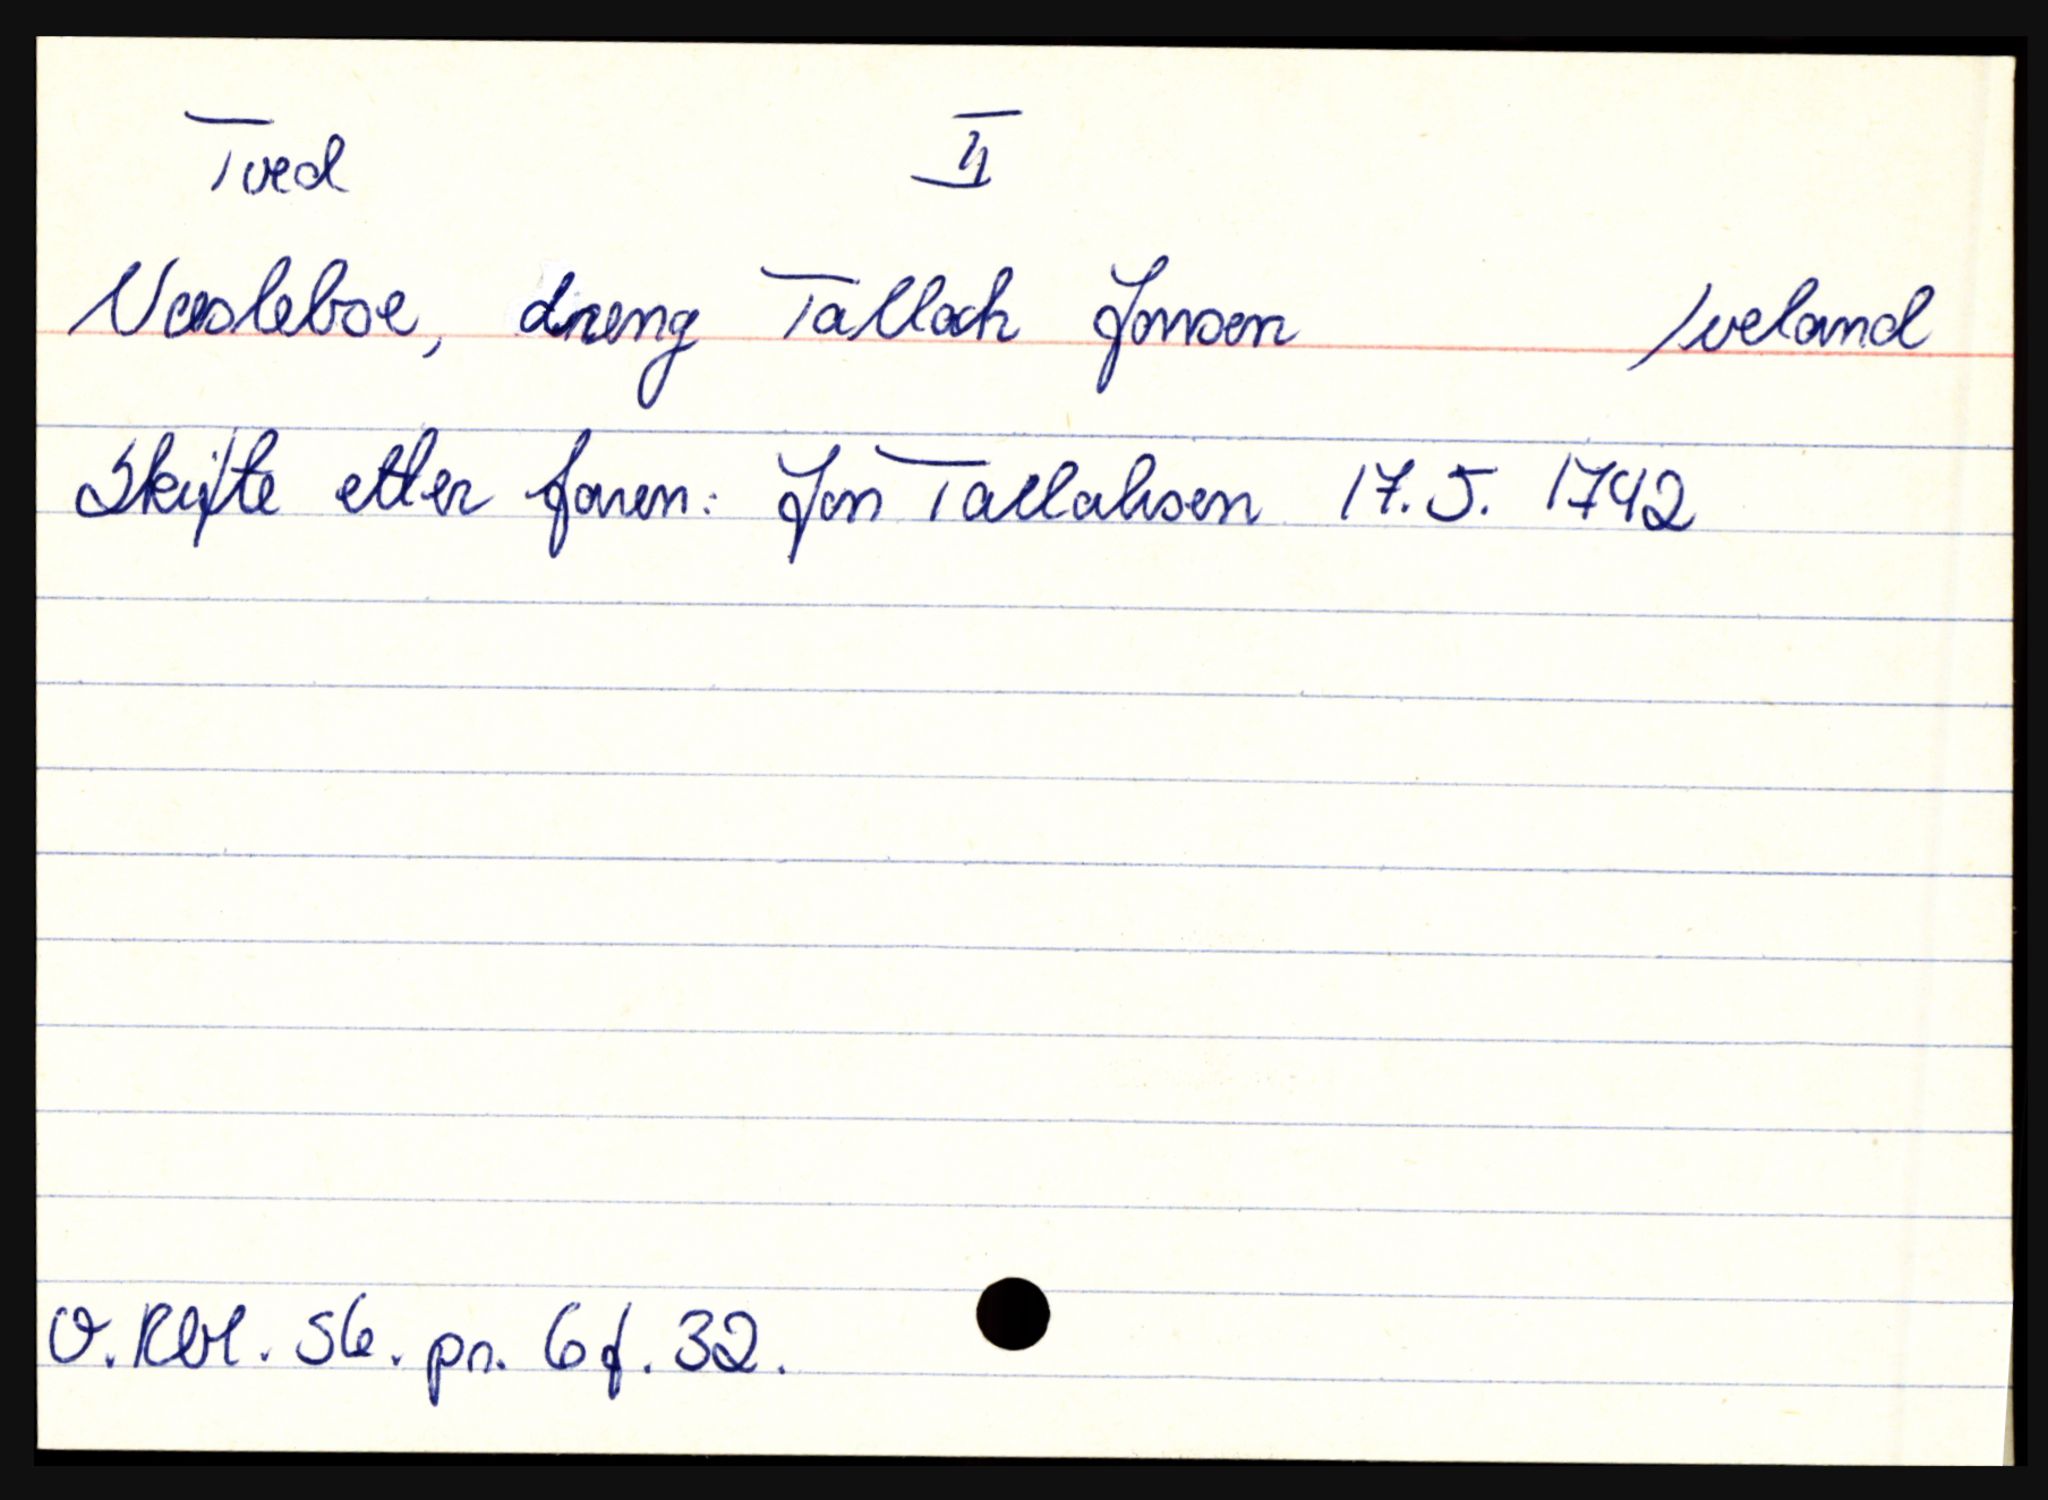 Tved II
Væslebøe, dreng Talloch Jonsen Iveland
Skifte etter faren: Jon Tallaksen 17.5. 1742
O. Rbl. Sk. pr. 6 f. 32.